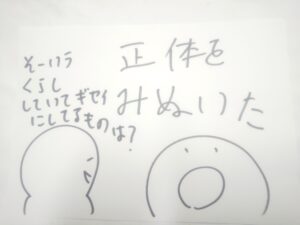 そーいうくらし
していてギセイ
にしてるものは?
正体を
みぬいた